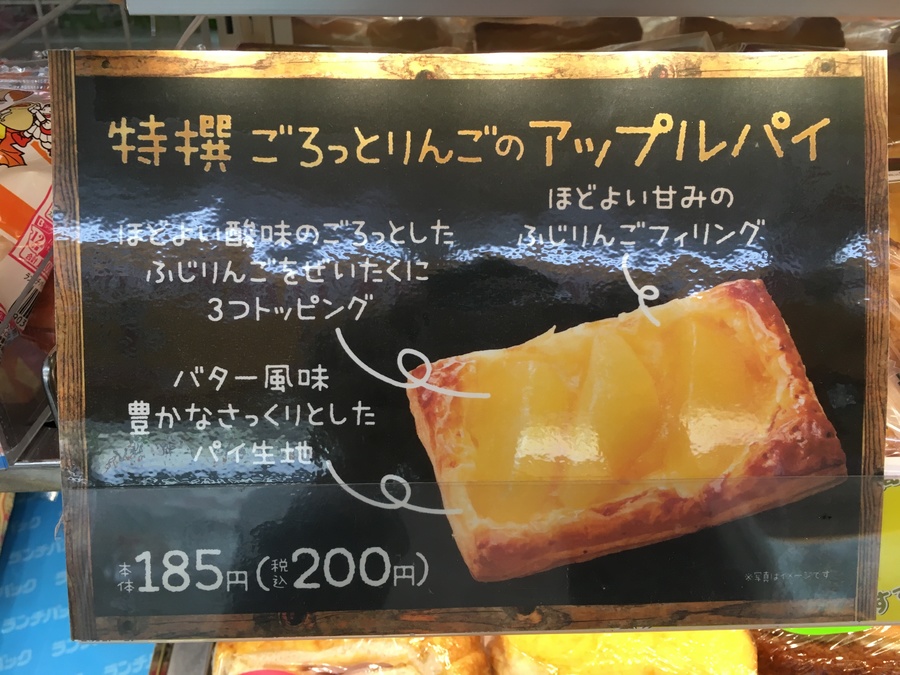 特撰 ごろっとりんごのアップルパイ
ほどよい甘みの
ふじりんごフィリング
ほどよい酸味のごろっとした
ふじりんごをぜいたくに
3つトッピング
バター風味
豊かなさっくりとした
パイ生地
本体185円(税込200円)
※写真はイメージです
ランチパック